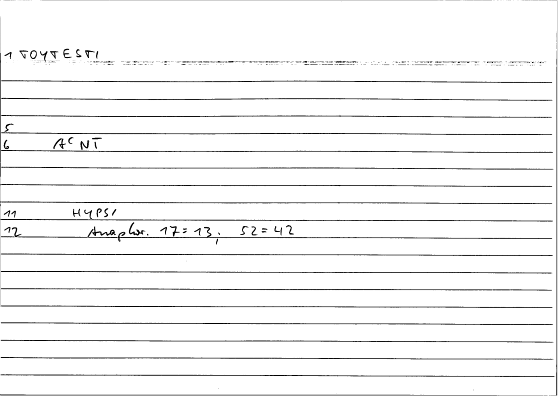 1 TOYTESTI
5
6 ACNT
11 HYPSI
12 Anaphor. 17=13; 52=42